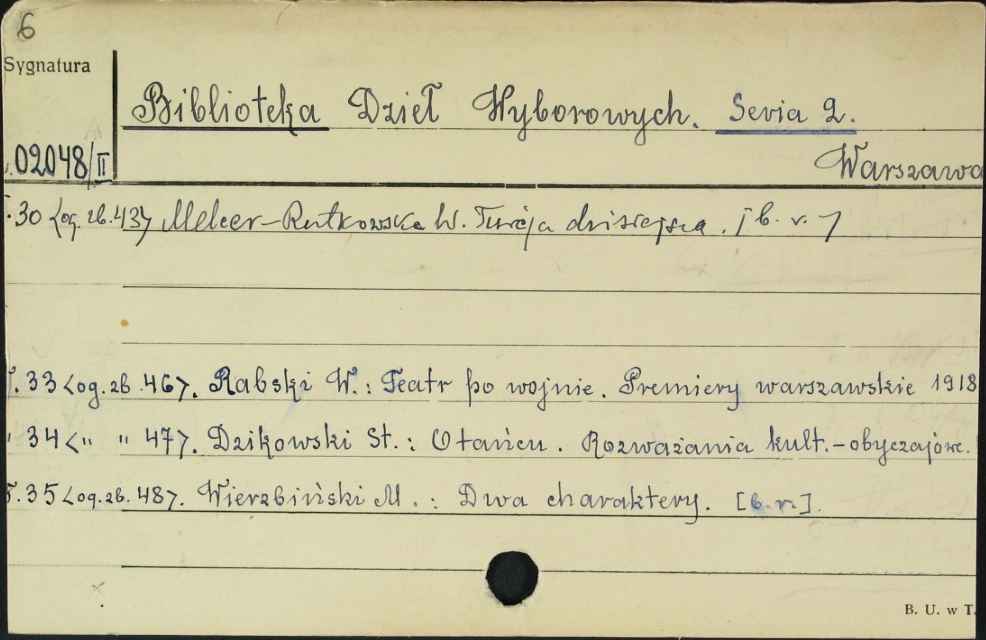 6
Sygnatura
02048/II
Biblioteka Dzieł Wyborowych. Seria 2.
Warszawa
T. 30 <og. zb. 43> Melcer-Rutkowska W. Turcja dzisiejsza. [b. r.]
T. 33 <og. zb. 46>. Rabski W.: Teatr po wojnie. Premiery warszawskie 1918
" 34 <" " 47>. Dzikowski St.: O tańcu. Rozważania kult.-obyczajowe.
T. 35 <og. zb. 48>. Wierzbiński M.: Dwa charaktery. [b. r.].
B. U. w T.